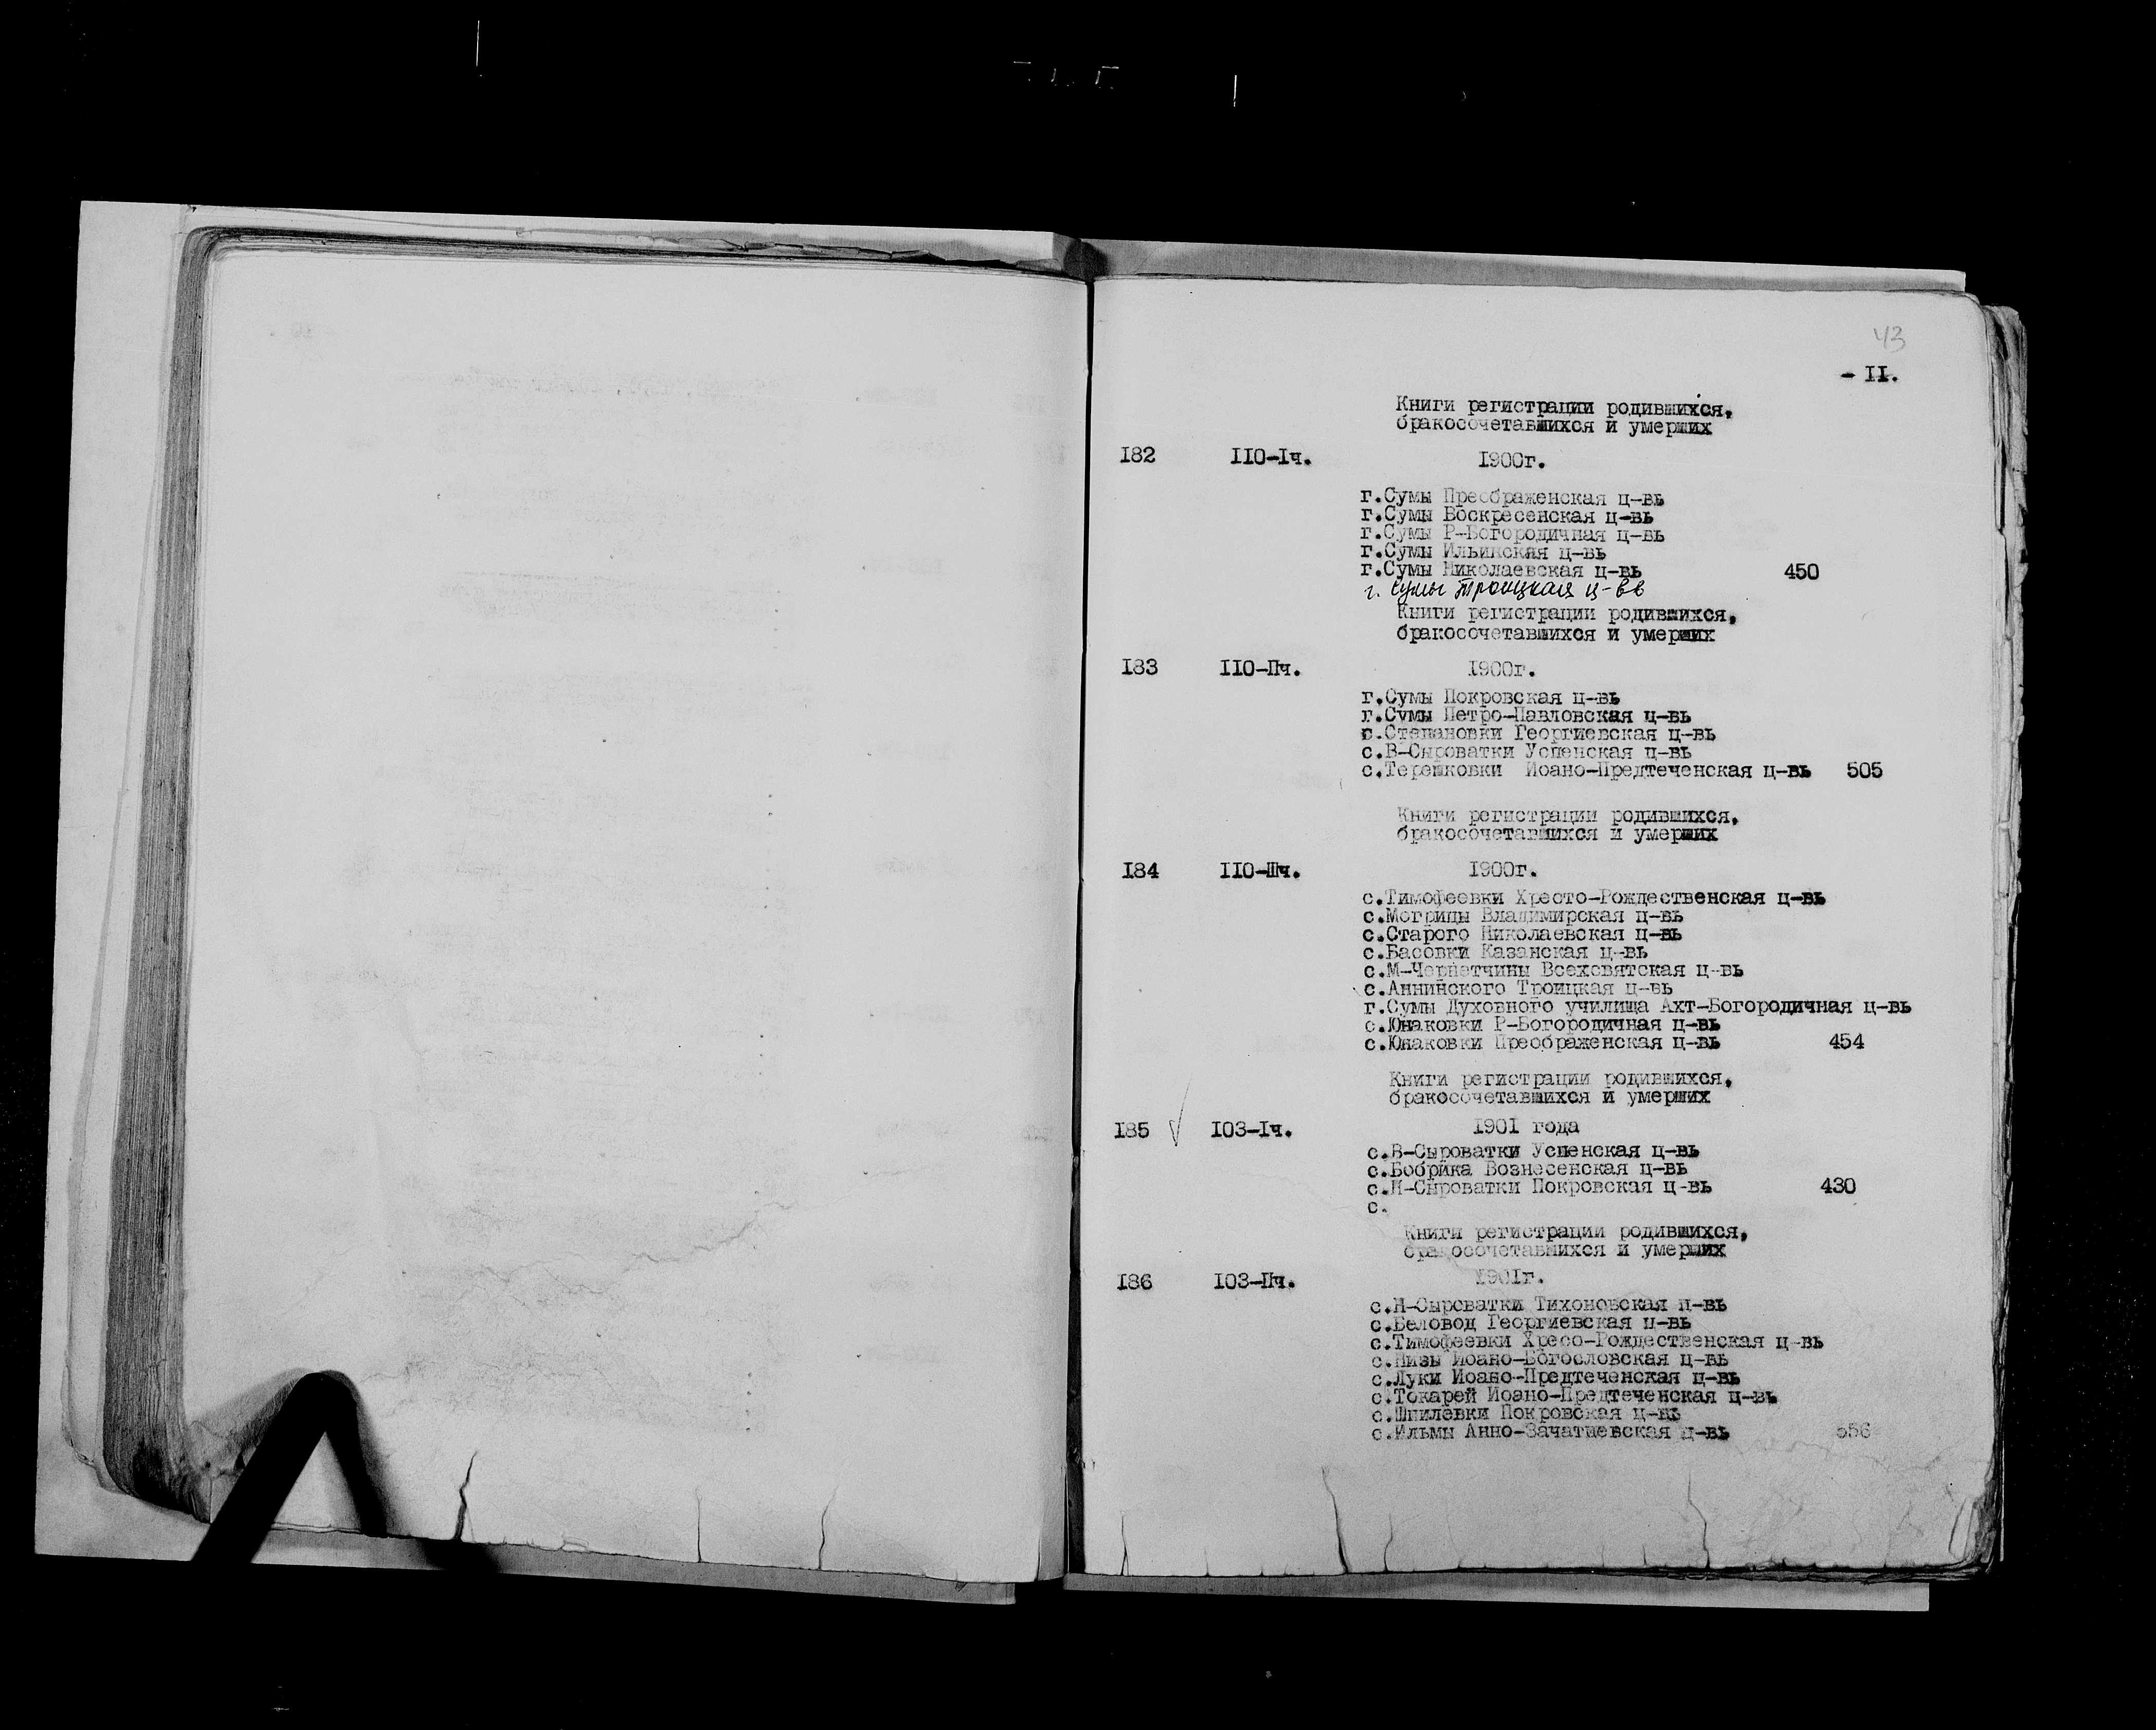 43
- II.
Книги регистрации родившихся,
бракосочетавшихся и умерших
182 110-Iч. 1900г.
г.Сумы Преображенская ц-вь
г.Сумы Воскресенская ц-вь
г.Сумы Р-Богородичная ц-вь
г.Сумы Ильинская ц-вь
г.Сумы Николаевская ц-вь 450
г. Сумы Троицкая ц-вь
Книги регистрации родившихся,
бракосочетавшихся и умерших
183 110-IIч. 1900г.
г.Сумы Покровская ц-вь
г.Сумы Петро-Павловская ц-вь
с.Степановки Георгиевская ц-вь
с.В-Сыроватки Успенская ц-вь
с.Терешковки Иоано-Предтеченская ц-вь 505
Книги регистрации родившихся,
бракосочетавшихся и умерших
184 110-IIIч. 1900г.
с.Тимофеевки Хресто-Рождественская ц-вь
с.Могрицы Владимирская ц-вь
с.Старого Николаевская ц-вь
с.Басовки Казанская ц-вь
с.М-Чернетчины Всехсвятская ц-вь
с.Аннинского Троицкая ц-вь
г.Сумы Духовного училища Ахт-Богородичная ц-вь
с.Юнаковки Р-Богородичная ц-вь
с.Юнаковки Преображенская ц-вь 454
Книги регистрации родившихся,
бракосочетавшихся и умерших
185 103-Iч. 1901 года
с.В-Сыроватки Успенская ц-вь
с.Бобрика Вознесенская ц-вь
с.Н-Сыроватки Покровская ц-вь 430
с.
Книги регистрации родившихся,
бракосочетавшихся и умерших
186 103-IIч. 1901г.
с.Н-Сыроватки Тихоновская ц-вь
с.Беловод Георгиевская ц-вь
с.Тимофеевки Хресо-Рождественская ц-вь
с.Низы Иоано-Богословская ц-вь
с.Луки Иоано-Предтеченская ц-вь
с.Токарей Иоано-Предтеченская ц-вь
с.Шпилевки Покровская ц-вь
с.Ильмы Анно-Зачатиевская ц-вь